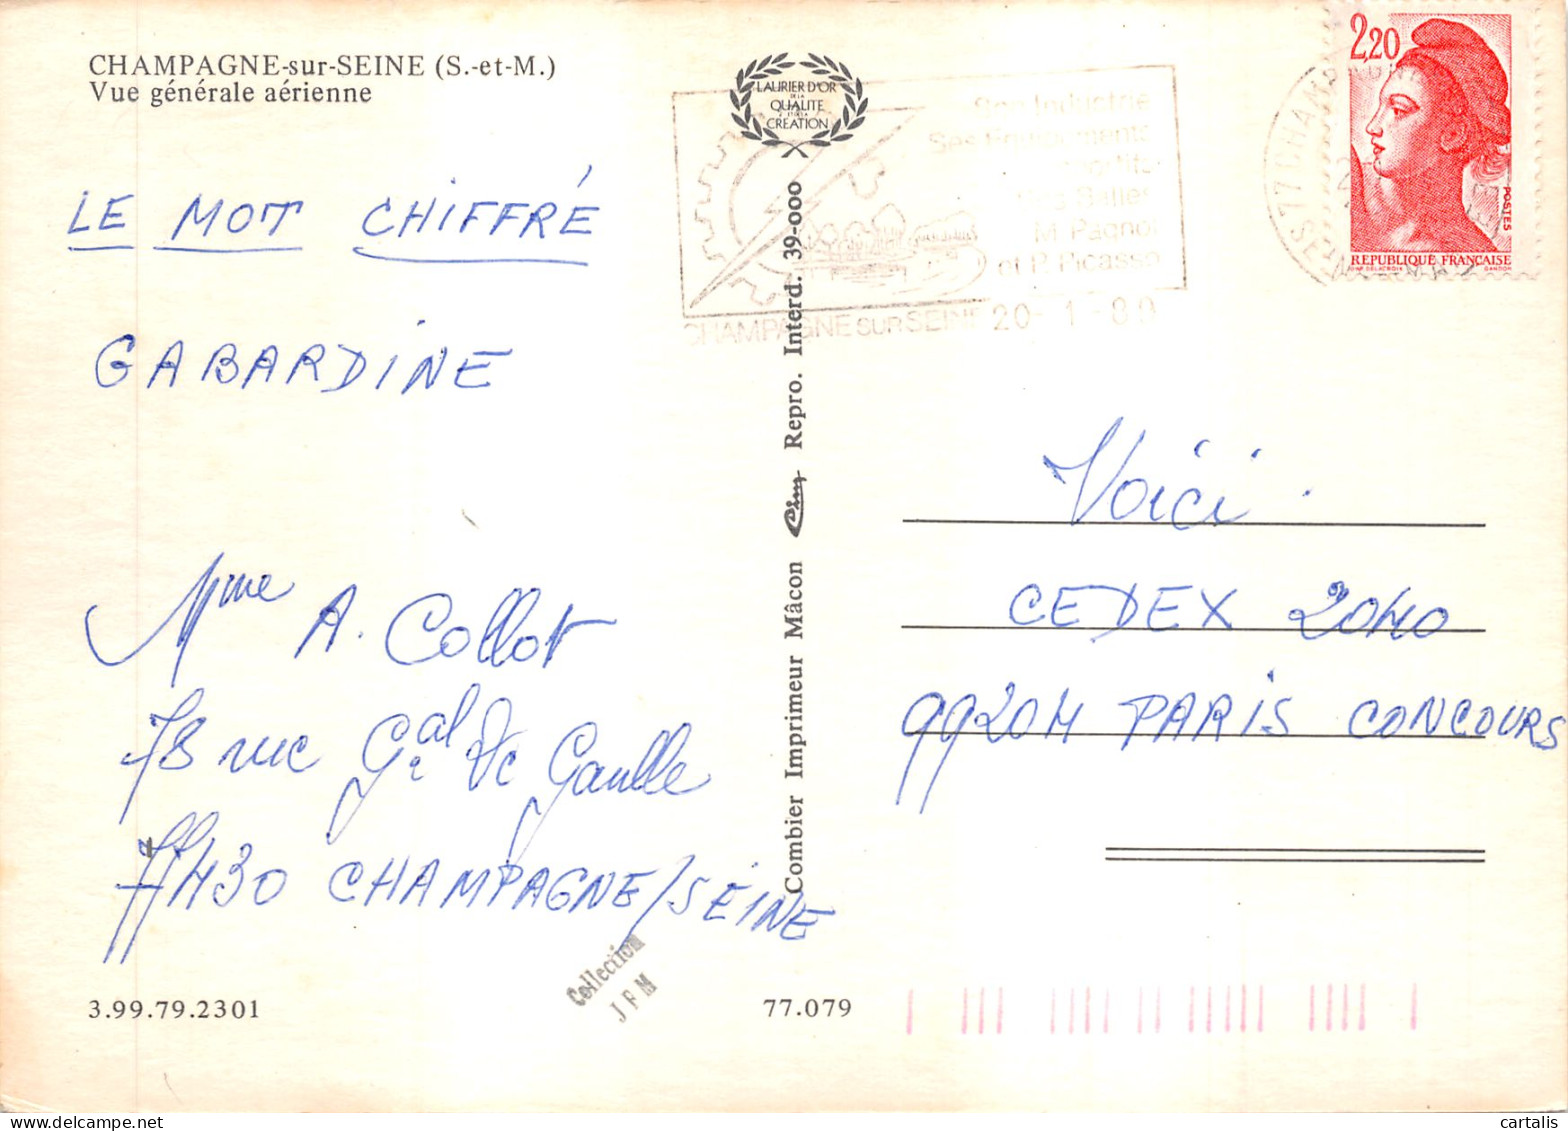 CHAMPAGNE-sur-SEINE (S.-et-M.)
Vue générale aérienne
LE MOT CHIFFRÉ
GABARDINE
Mme A. Collot
78 rue Gal de Gaulle
77430 CHAMPAGNE/SEINE
3.99.79.2301
Collection
JFM
77.079
LAURIER D'OR
DE LA
QUALITE
CREATION
Combier Imprimeur Mâcon Cim Repro. Interd. 39-000
Son Industrie
Ses Equipements
Ses Salles
M. Pagnol
et P. Picasso
CHAMPAGNE SUR SEINE 20-1-89
77 CHAMPAGNE
2,20
POSTES
REPUBLIQUE FRANÇAISE
D'AP. DELACROIX GANDON
Voici
CEDEX 2040
99204 PARIS CONCOURS
cartalis